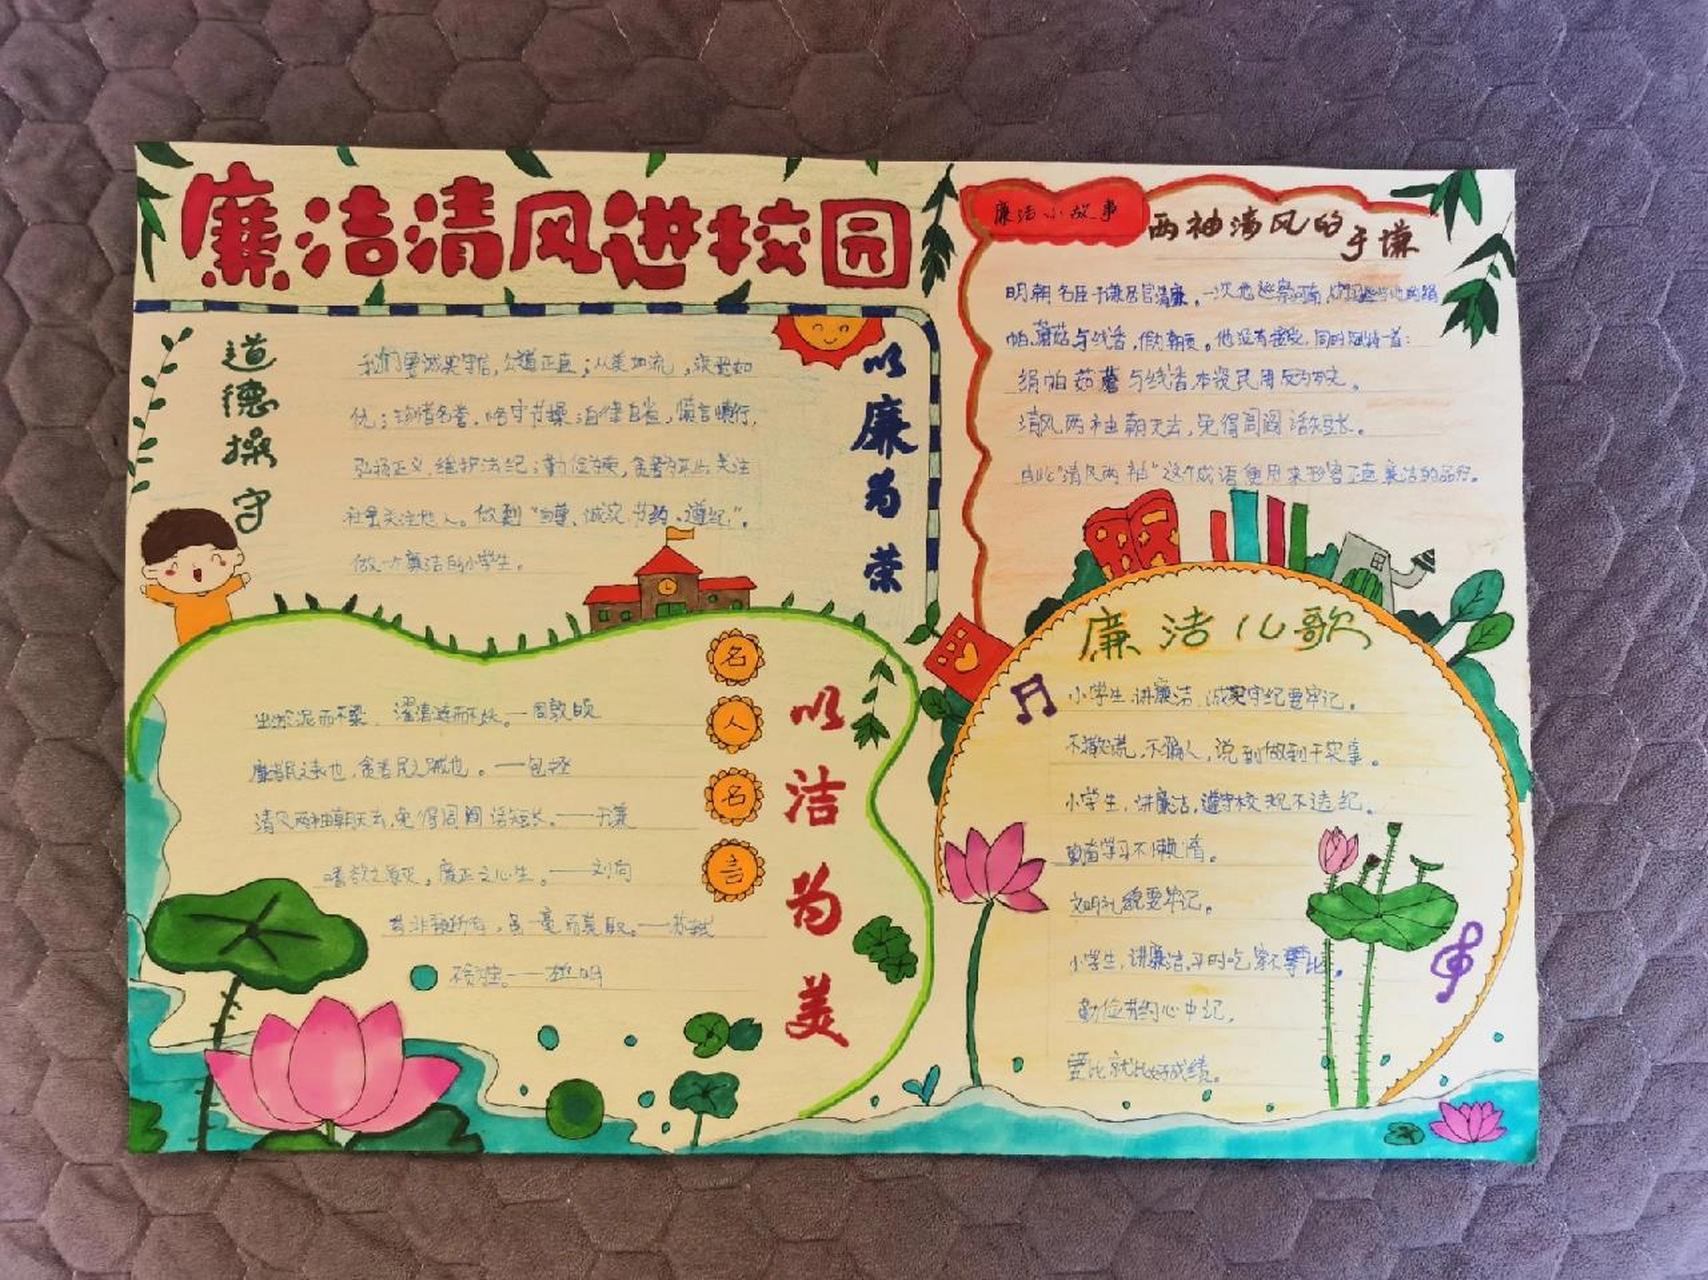 廉洁清风进校园
道德操守
我们要诚实守信，公道正直；从善如流，疾恶如
仇；珍惜名誉，恪守节操；自律自省，慎言慎行，
弘扬正义，维护法纪；勤俭为荣，贪奢为耻；关注
社会关注他人。做到“自尊、诚实、节约、遵纪”。
做一个廉洁的小学生。
以廉为荣
名人名言
出淤泥而不染，濯清涟而不妖。——周敦颐
廉者民之表也，贪者民之贼也。——包拯
清风两袖朝天去，免得闾阎话短长。——于谦
嗜欲之原灭，廉正之心生。——刘向
非吾所有，虽一毫而莫取。——苏轼
不贪
以洁为美
廉洁小故事
两袖清风的于谦
明朝名臣于谦居官清廉，一次他巡察河南，
帕、蘑菇与线香，他没有接受，同时赋诗一首：
绢帕菇蘑与线香本资民用反为殃。
清风两袖朝天去，免得闾阎话短长。
由此“清风两袖”这个成语便用来形容正直廉洁的品行。
廉洁儿歌
小学生，讲廉洁，诚实守纪要牢记。
不撒谎，不骗人，说到做到干实事。
小学生，讲廉洁，遵守校规不违纪。
勤奋学习不懒惰。
文明礼貌要牢记。
小学生，讲廉洁，平时吃穿不攀比。
勤俭节约心中记，
要比就比好成绩。